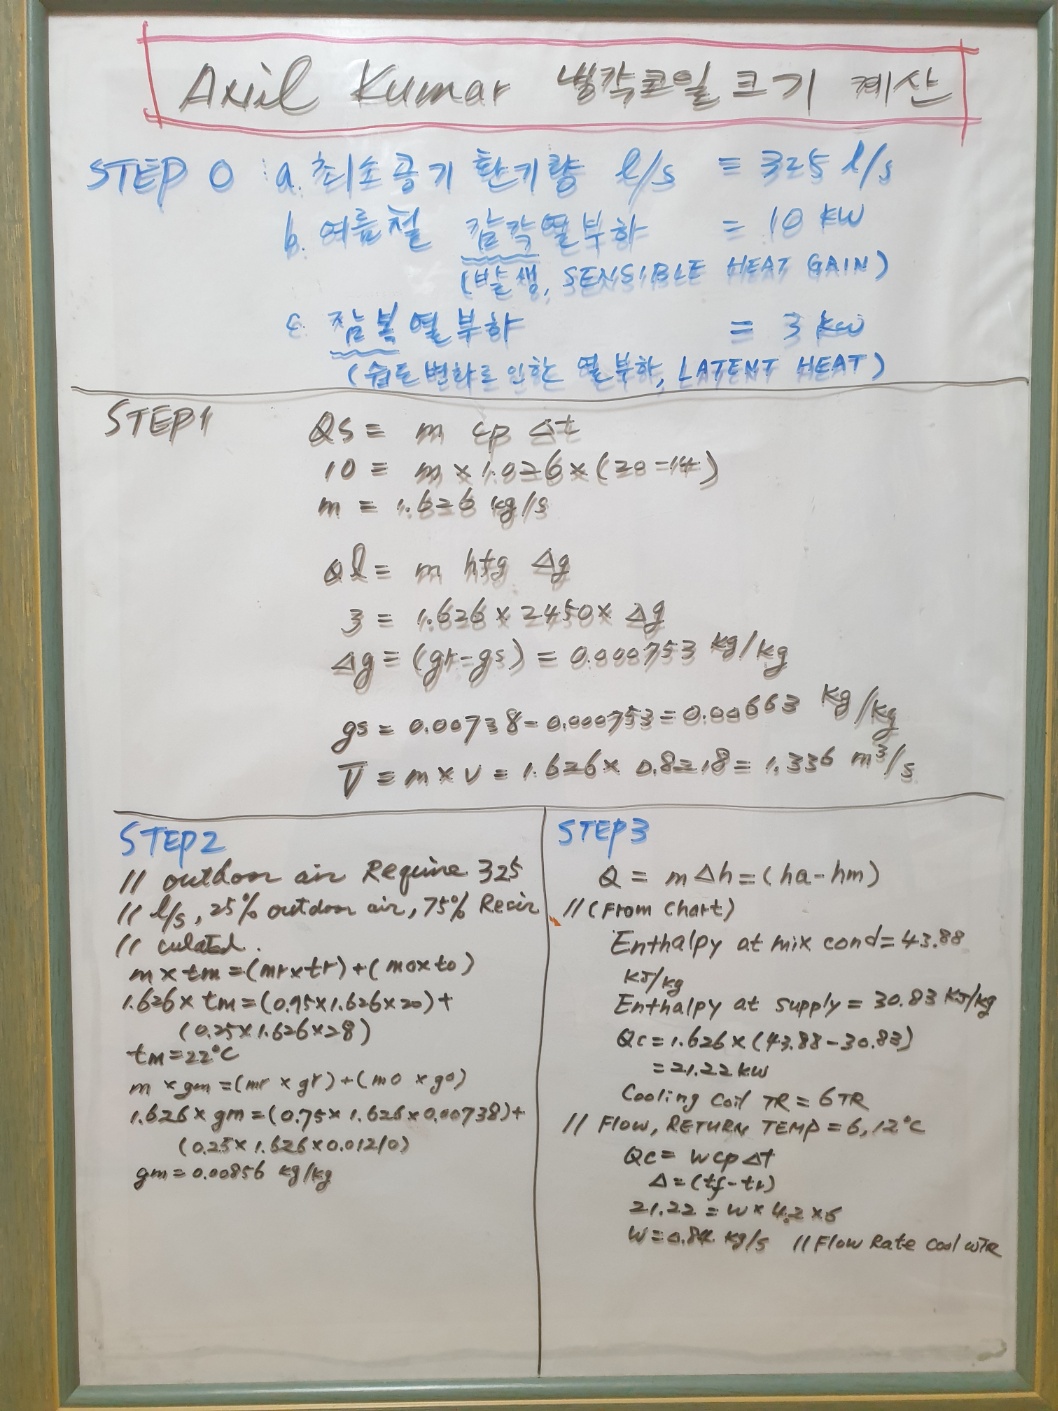 Anil Kumar 냉각코일 크기 계산
STEP 0 a. 최소공기 환기량 l/s = 325 l/s
b. 여름철 감각열부하 = 10 kW
(발생, SENSIBLE HEAT GAIN)
c. 잠복열부하 = 3 kw
(습도변화로 인한 열부하, LATENT HEAT)
STEP1
Qs = m cp Δt
10 = m × 1.026 × (20-14)
m = 1.626 kg/s
Ql = m hfg Δg
3 = 1.626 × 2450 × Δg
Δg = (gr-gs) = 0.000753 kg/kg
gs = 0.00738 - 0.000753 = 0.00663 kg/kg
V = m × v = 1.626 × 0.8218 = 1.336 m³/s
STEP2
// outdoor air Require 325
// l/s, 25% outdoor air, 75% Recir
// culated.
m × tm = (mr×tr) + (mo×to)
1.626 × tm = (0.75×1.626×20) +
(0.25×1.626×28)
tm = 22°C
m × gm = (mr × gr) + (mo × go)
1.626 × gm = (0.75 × 1.626 × 0.00738) +
(0.25 × 1.626 × 0.01210)
gm = 0.00856 kg/kg
STEP3
Q = m Δh = (ha - hm)
// (From chart)
Enthalpy at mix cond = 43.88
KJ/kg
Enthalpy at supply = 30.83 KJ/kg
Qc = 1.626 × (43.88 - 30.83)
= 21.22 kw
Cooling Coil TR = 6TR
// Flow, RETURN TEMP = 6, 12°C
Qc = w cp Δt
Δ = (tf - tr)
21.22 = w × 4.2 × 6
W = 0.84 kg/s // Flow Rate Cool WTR